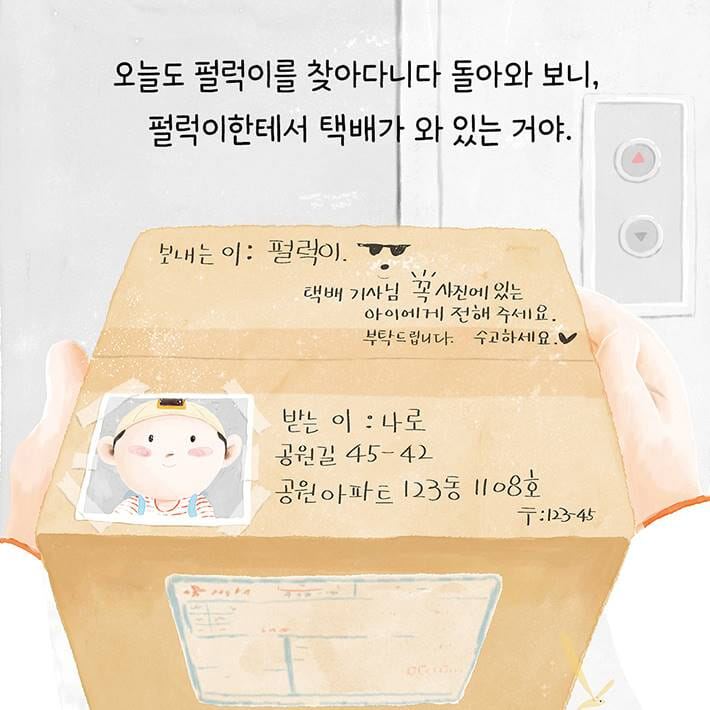 오늘도 펄럭이를 찾아다니다 돌아와 보니,
펄럭이한테서 택배가 와 있는 거야.
보내는 이 : 펄럭이.
택배 기사님 꼭 사진에 있는
아이에게 전해 주세요.
부탁드립니다. 수고하세요.♥
받는 이 : 나로
공원길 45-42
공원아파트 123동 1108호
〒:123-45